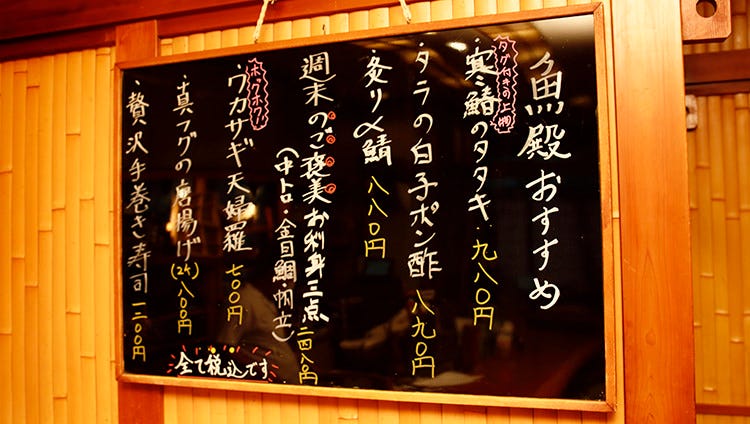 魚殿おすすめ
タグ付きの上物
・寒鰆のタタキ 九八〇円
・タラの白子ポン酢 八九〇円
・炙り〆鯖 八八〇円
・週末のご褒美お刺身三点 二四八〇円
(中トロ・金目鯛・帆立)
ホックホク!
・ワカサギ天婦羅 七〇〇円
・真フグの唐揚げ(2ケ) 八〇〇円
・贅沢手巻き寿司 一二〇〇円
全て税込です